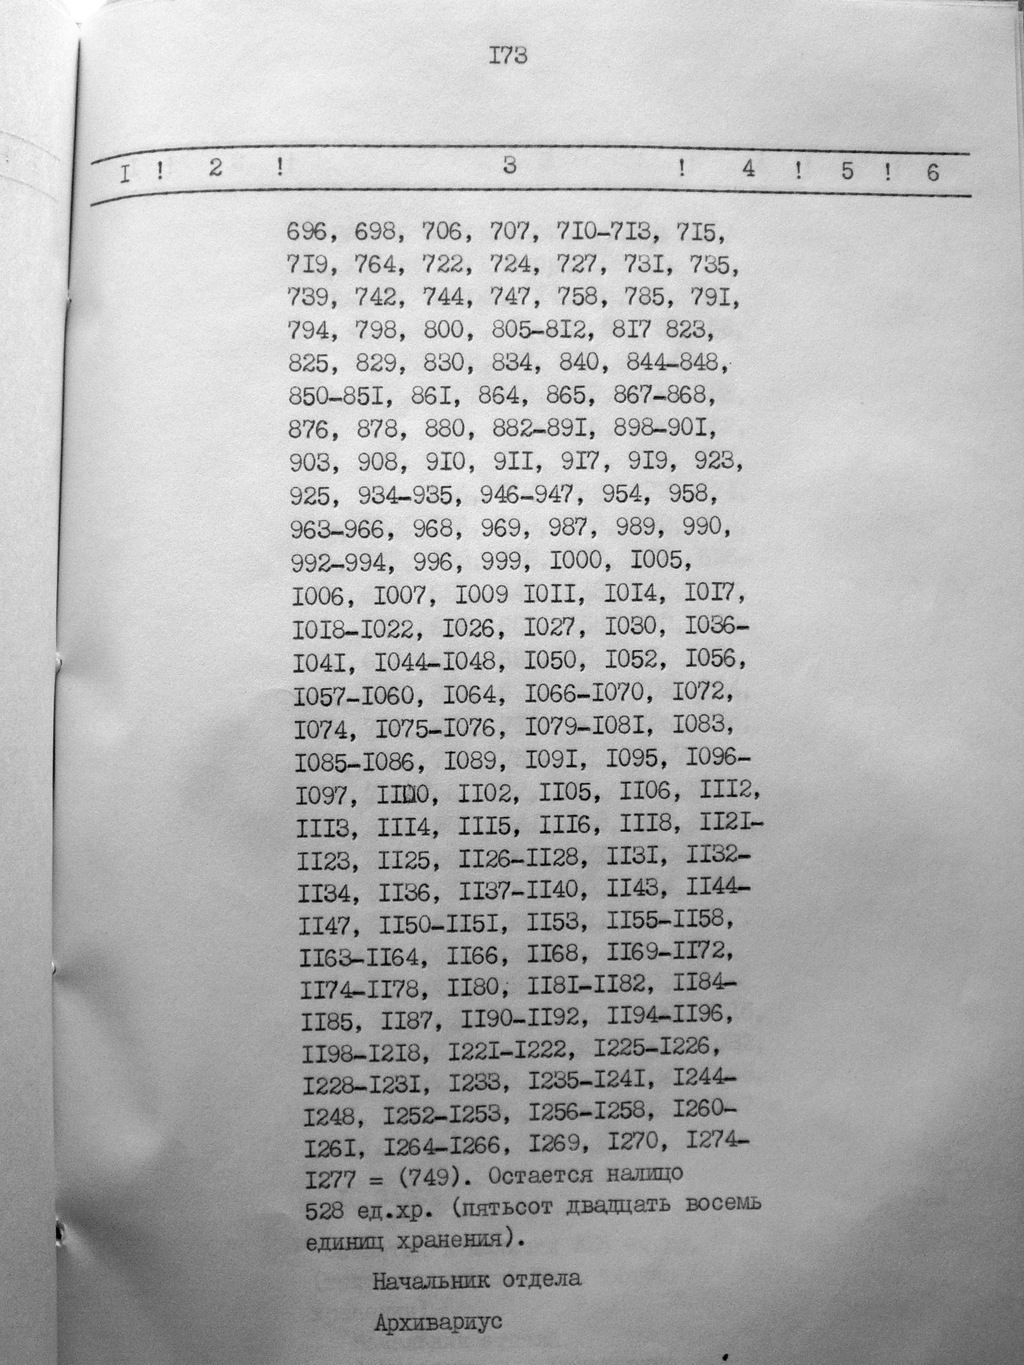 I73
I ! 2 ! 3 ! 4 ! 5 ! 6
696, 698, 706, 707, 7I0-7I3, 7I5,
7I9, 764, 722, 724, 727, 73I, 735,
739, 742, 744, 747, 758, 785, 79I,
794, 798, 800, 805-8I2, 8I7 823,
825, 829, 830, 834, 840, 844-848,
850-85I, 86I, 864, 865, 867-868,
876, 878, 880, 882-89I, 898-90I,
903, 908, 9I0, 9II, 9I7, 9I9, 923,
925, 934-935, 946-947, 954, 958,
963-966, 968, 969, 987, 989, 990,
992-994, 996, 999, I000, I005,
I006, I007, I009 I0II, I0I4, I0I7,
I0I8-I022, I026, I027, I030, I036-
I04I, I044-I048, I050, I052, I056,
I057-I060, I064, I066-I070, I072,
I074, I075-I076, I079-I08I, I083,
I085-I086, I089, I09I, I095, I096-
I097, II00, II02, II05, II06, III2,
III3, III4, III5, III6, III8, II2I-
II23, II25, II26-II28, II3I, II32-
II34, II36, II37-II40, II43, II44-
II47, II50-II5I, II53, II55-II58,
II63-II64, II66, II68, II69-II72,
II74-II78, II80, II8I-II82, II84-
II85, II87, II90-II92, II94-II96,
II98-I2I8, I22I-I222, I225-I226,
I228-I23I, I233, I235-I24I, I244-
I248, I252-I253, I256-I258, I260-
I26I, I264-I266, I269, I270, I274-
I277 = (749). Остается налицо
528 ед.хр. (пятьсот двадцать восемь
единиц хранения).
Начальник отдела
Архивариус